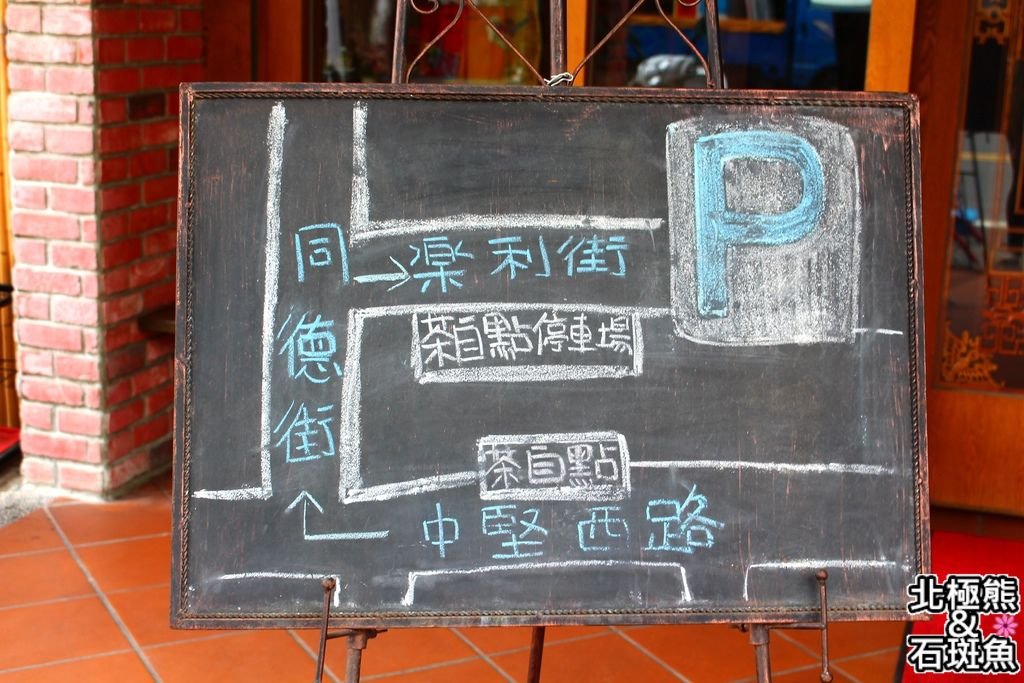 P
同德街
→楽利街
茶自點停車場
茶自點
中堅西路
北極熊
&
石斑魚